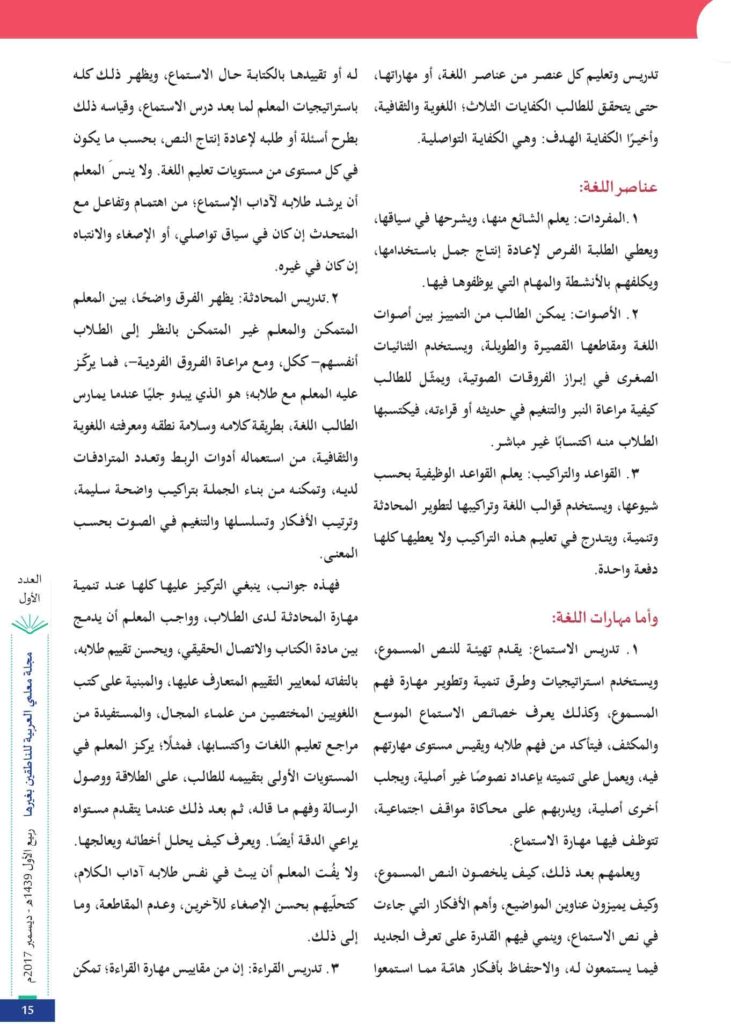 تدريس وتعليم كل عنصر من عناصر اللغة، أو مهاراتها،
حتى يتحقق للطالب الكفايات الثلاث؛ اللغوية والثقافية،
وأخيرًا الكفاية الهدف: وهي الكفاية التواصلية.
عناصر اللغة:
١.المفردات: يعلم الشائع منها، ويشرحها في سياقها،
ويعطي الطلبة الفرص لإعادة إنتاج جمل باستخدامها،
ويكلفهم بالأنشطة والمهام التي يوظفوها فيها.
٢. الأصوات: يمكن الطالب من التمييز بين أصوات
اللغة ومقاطعها القصيرة والطويلة، ويستخدم الثنائيات
الصغرى في إبراز الفروقات الصوتية، ويمثّل للطالب
كيفية مراعاة النبر والتنغيم في حديثه أو قراءته، فيكتسبها
الطلاب منه اكتسابًا غير مباشر.
٣. القواعد والتراكيب: يعلم القواعد الوظيفية بحسب
شيوعها، ويستخدم قوالب اللغة وتراكيبها لتطوير المحادثة
وتنمية، ويتدرج في تعليم هذه التراكيب ولا يعطيها كلها
دفعة واحدة.
وأما مهارات اللغة:
١. تدريس الاستماع: يقدم تهيئة للنص المسموع،
ويستخدم استراتيجيات وطرق تنمية وتطوير مهارة فهم
المسموع، وكذلك يعرف خصائص الاستماع الموسع
والمكثف، فيتأكد من فهم طلابه ويقيس مستوى مهارتهم
فيه، ويعمل على تنميته بإعداد نصوصًا غير أصلية، ويجلب
أخرى أصلية، ويدربهم على محاكاة مواقف اجتماعية،
تتوظف فيها مهارة الاستماع.
ويعلمهم بعد ذلك، كيف يلخصون النص المسموع،
وكيف يميزون عناوين المواضيع، وأهم الأفكار التي جاءت
في نص الاستماع، وينمي فيهم القدرة على تعرف الجديد
فيما يستمعون له، والاحتفاظ بأفكار هامّة مما استمعوا
له أو تقييدها بالكتابة حال الاستماع، ويظهر ذلك كله
باستراتيجيات المعلم لما بعد درس الاستماع، وقياسه ذلك
بطرح أسئلة أو طلبه لإعادة إنتاج النص، بحسب ما يكون
في كل مستوى من مستويات تعليم اللغة. ولا ينسَ المعلم
أن يرشد طلابه لآداب الإستماع؛ من اهتمام وتفاعل مع
المتحدث إن كان في سياق تواصلي، أو الإصغاء والانتباه
إن كان في غيره.
٢.تدريس المحادثة: يظهر الفرق واضحًا، بين المعلم
المتمكن والمعلم غير المتمكن بالنظر إلى الطلاب
أنفسهم– ككل، ومع مراعاة الفروق الفردية–، فما يركّز
عليه المعلم مع طلابه؛ هو الذي يبدو جليًا عندما يمارس
الطالب اللغة، بطريقة كلامه وسلامة نطقه ومعرفته اللغوية
والثقافية، من استعماله أدوات الربط وتعدد المترادفات
لديه، وتمكنه من بناء الجملة بتراكيب واضحة سليمة،
وترتيب الأفكار وتسلسلها والتنغيم في الصوت بحسب
المعنى.
فهذه جوانب، ينبغي التركيز عليها كلها عند تنمية
مهارة المحادثة لدى الطلاب، وواجب المعلم أن يدمج
بين مادة الكتاب والاتصال الحقيقي، ويحسن تقييم طلابه،
بالتفاته لمعايير التقييم المتعارف عليها، والمبنية على كتب
اللغويين المختصين من علماء المجال، والمستفيدة من
مراجع تعليم اللغات واكتسابها، فمثلًا؛ يركز المعلم في
المستويات الأولى بتقييمه للطالب، على الطلاقة ووصول
الرسالة وفهم ما قاله، ثم بعد ذلك عندما يتقدم مستواه
يراعي الدقة أيضًا. ويعرف كيف يحلل أخطائه ويعالجها.
ولا يفُت المعلم أن يبث في نفس طلابه آداب الكلام،
كتحلّيهم بحسن الإصغاء للآخرين، وعدم المقاطعة، وما
إلى ذلك.
٣. تدريس القراءة: إن من مقاييس مهارة القراءة؛ تمكن
العدد
الأول
مجلة معلمي العربية للناطقين بغيرها ربيع الأول 1439هـ - ديسمبر 2017م
15